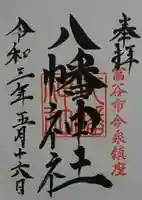 奉拝
富谷市今泉鎮座
八幡神社
令和三年五月十六日